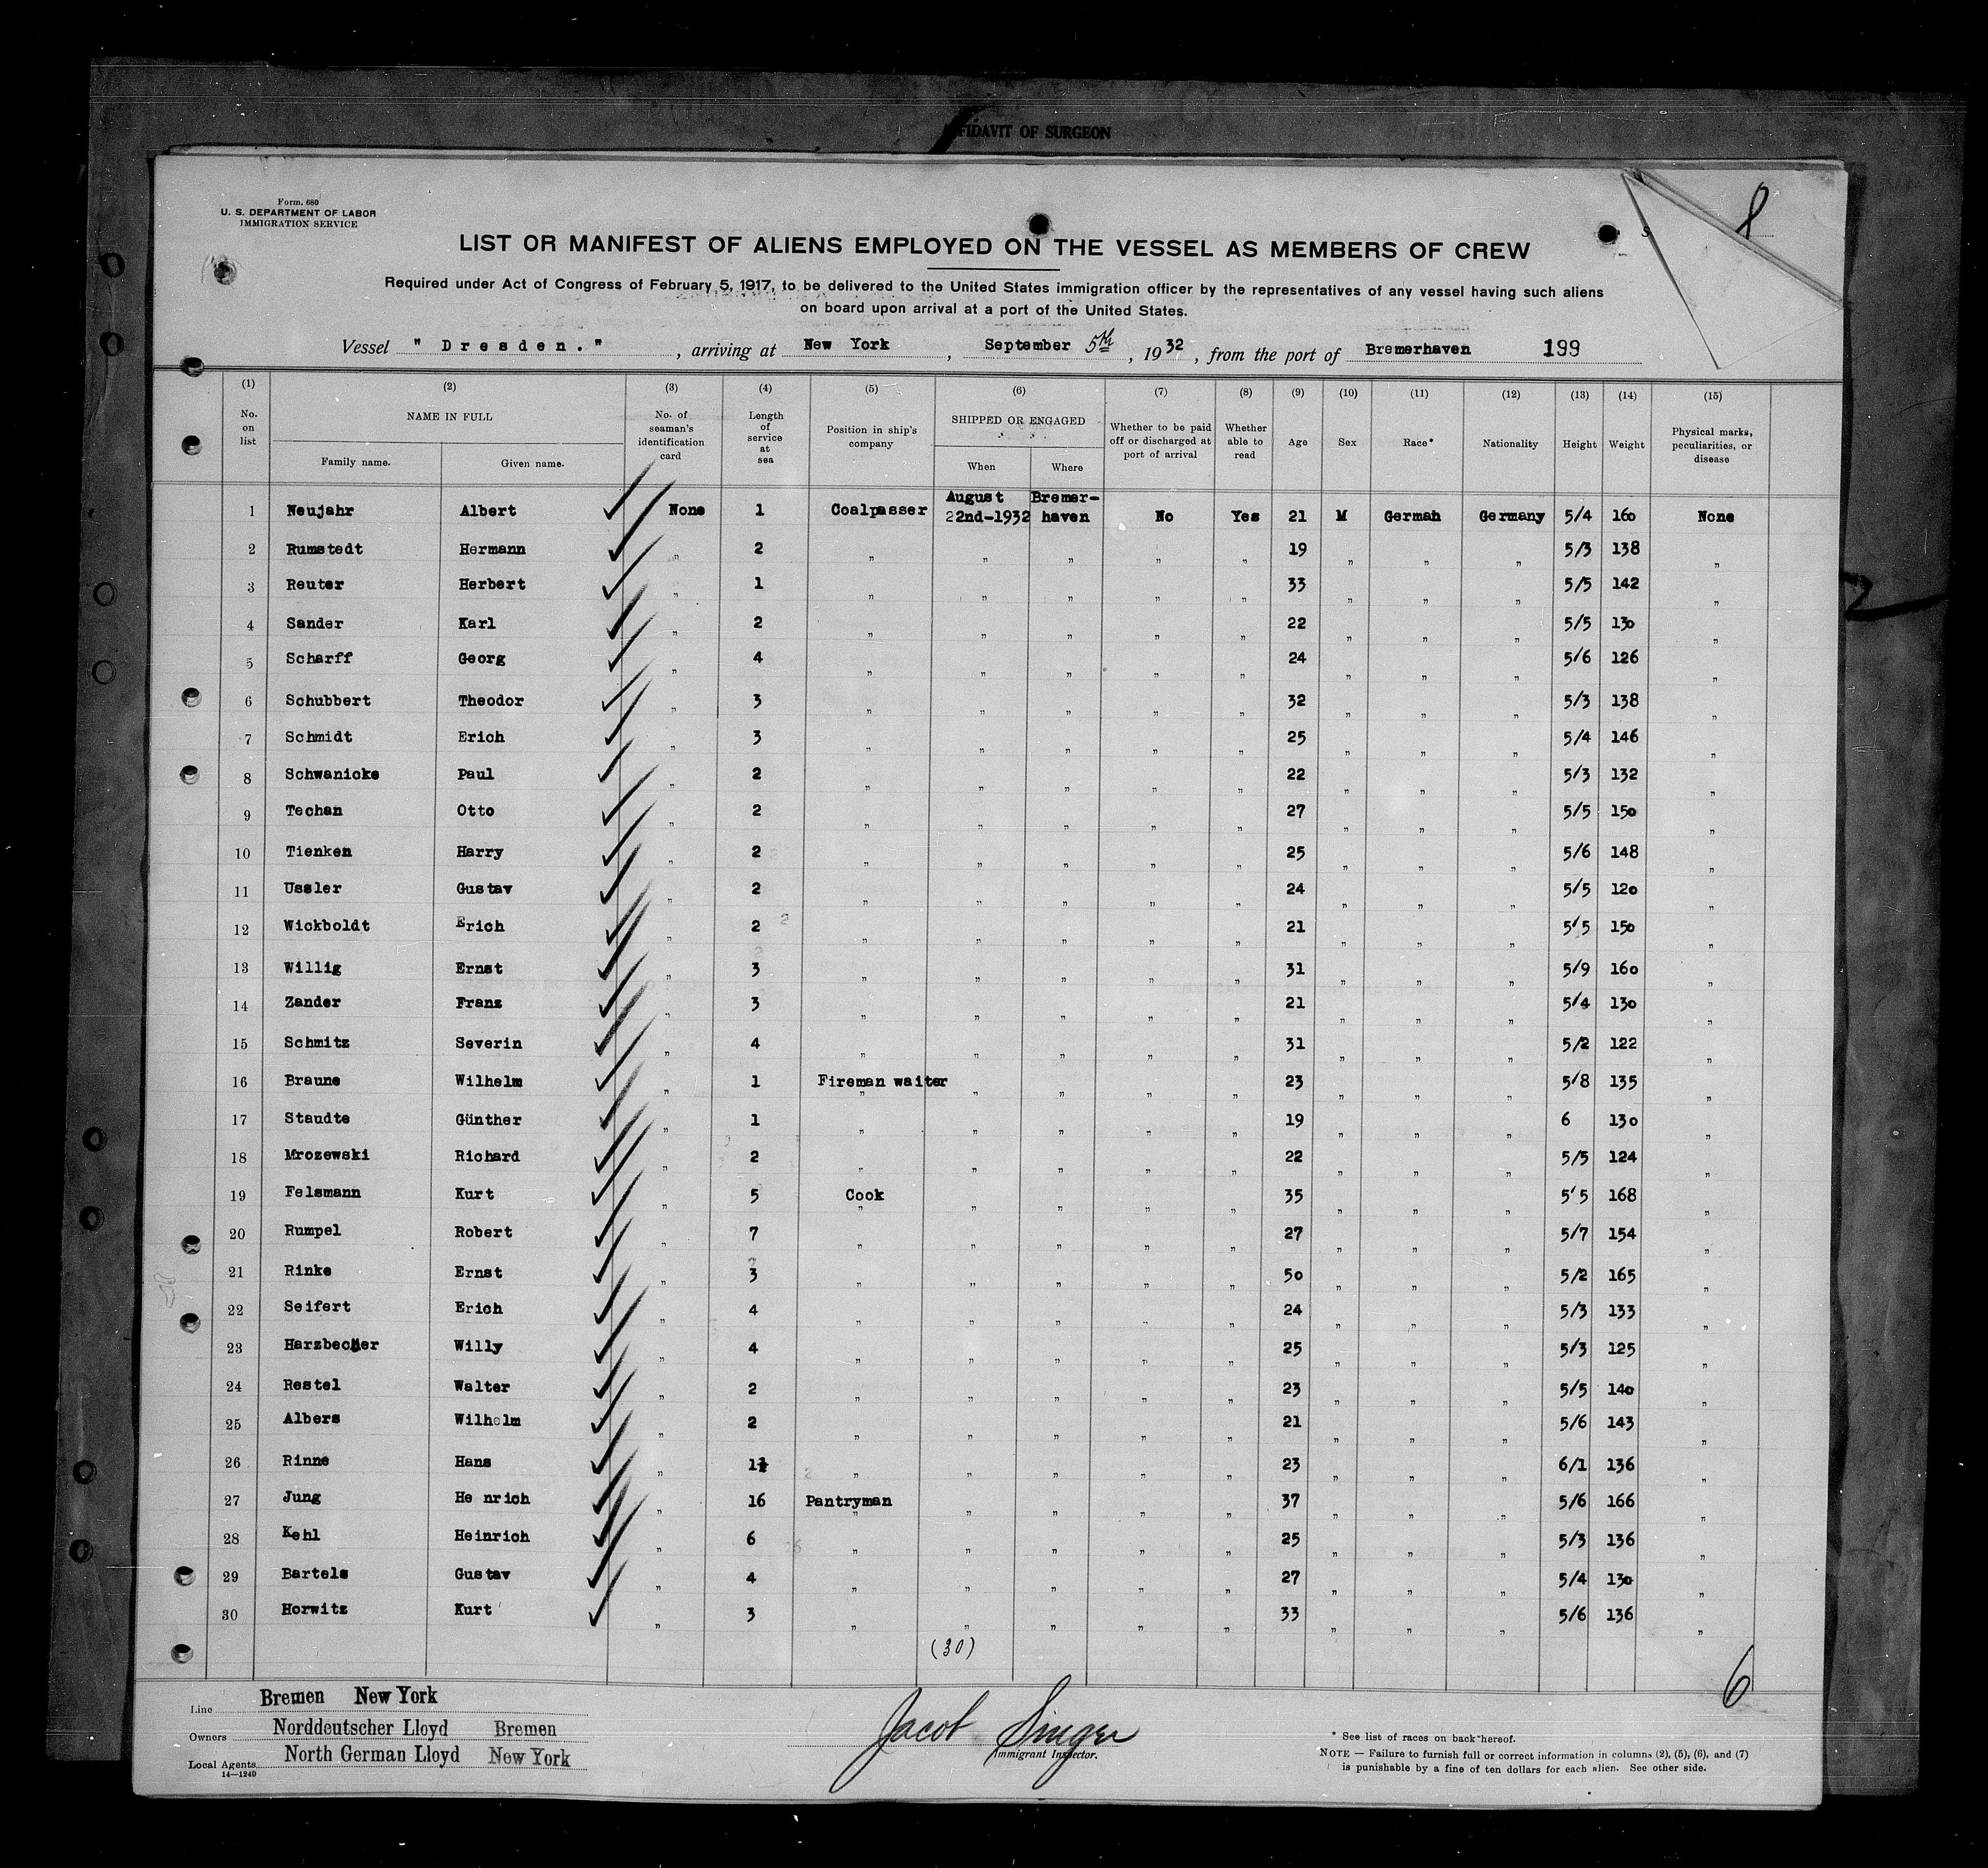 FIDAVIT OF SURGEON
8
Form. 680
U. S. DEPARTMENT OF LABOR
IMMIGRATION SERVICE
LIST OR MANIFEST OF ALIENS EMPLOYED ON THE VESSEL AS MEMBERS OF CREW
Required under Act of Congress of February 5, 1917, to be delivered to the United States immigration officer by the representatives of any vessel having such aliens
on board upon arrival at a port of the United States.
Vessel " Dresden. " , arriving at New York , September 5th , 1932 , from the port of Bremerhaven 199
(1) (2) (3) (4) (5) (6) (7) (8) (9) (10) (11) (12) (13) (14) (15)
No. on list NAME IN FULL Family name. Given name. No. of seaman's identification card Length of service at sea Position in ship's company SHIPPED OR ENGAGED When Where Whether to be paid off or discharged at port of arrival Whether able to read Age Sex Race* Nationality Height Weight Physical marks, peculiarities, or disease
1 Neujahr Albert None 1 Coalpasser August 22nd-1932 Bremer-haven No Yes 21 M German Germany 5/4 160 None
2 Rumstedt Hermann " 2 " " " " " 19 " " " 5/3 138 "
3 Reuter Herbert " 1 " " " " " 33 " " " 5/5 142 "
4 Sander Karl " 2 " " " " " 22 " " " 5/5 130 "
5 Scharff Georg " 4 " " " " " 24 " " " 5/6 126 "
6 Schubbert Theodor " 3 " " " " " 32 " " " 5/3 138 "
7 Schmidt Erich " 3 " " " " " 25 " " " 5/4 146 "
8 Schwanicke Paul " 2 " " " " " 22 " " " 5/3 132 "
9 Techan Otto " 2 " " " " " 27 " " " 5/5 150 "
10 Tienken Harry " 2 " " " " " 25 " " " 5/6 148 "
11 Ussler Gustav " 2 " " " " " 24 " " " 5/5 120 "
12 Wickboldt Erich " 2 " " " " " 21 " " " 5'5 150 "
13 Willig Ernst " 3 " " " " " 31 " " " 5/9 160 "
14 Zander Franz " 3 " " " " " 21 " " " 5/4 130 "
15 Schmitz Severin " 4 " " " " " 31 " " " 5/2 122 "
16 Braune Wilhelm " 1 Fireman waiter " " " " 23 " " " 5/8 135 "
17 Staudte Günther " 1 " " " " " 19 " " " 6 130 "
18 Mrozewski Richard " 2 " " " " " 22 " " " 5/5 124 "
19 Felsmann Kurt " 5 Cook " " " " 35 " " " 5'5 168 "
20 Rumpel Robert " 7 " " " " " 27 " " " 5/7 154 "
21 Rinke Ernst " 3 " " " " " 50 " " " 5/2 165 "
22 Seifert Erich " 4 " " " " " 24 " " " 5/3 133 "
23 Harzbecher Willy " 4 " " " " " 25 " " " 5/3 125 "
24 Restel Walter " 2 " " " " " 23 " " " 5/5 140 "
25 Albers Wilhelm " 2 " " " " " 21 " " " 5/6 143 "
26 Rinne Hans " 1½ " " " " " 23 " " " 6/1 136 "
27 Jung He nrich " 16 Pantryman " " " " 37 " " " 5/6 166 "
28 Kehl Heinrich " 6 " " " " " 25 " " " 5/3 136 "
29 Bartels Gustav " 4 " " " " " 27 " " " 5/4 130 "
30 Horwitz Kurt " 3 " " " " " 33 " " " 5/6 136 "
(30)
6
Line Bremen New York
Owners Norddeutscher Lloyd Bremen
Local Agents North German Lloyd New York
14—1240
Jacob Singer
Immigrant Inspector.
* See list of races on back hereof.
NOTE — Failure to furnish full or correct information in columns (2), (5), (6), and (7)
is punishable by a fine of ten dollars for each alien. See other side.